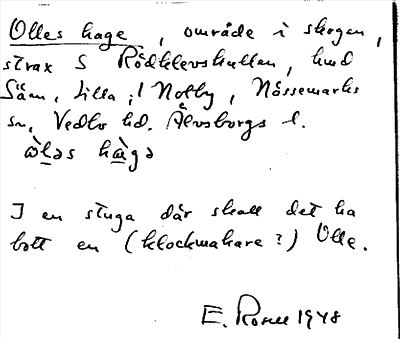 Olles hage, område i skogen,
strax S Rödklevskullen, hmd
Sään, Lilla, i Nolby, Nössemarks
sn, Vedbo hd. Älvsborgs l.
I en stuga där skall det ha
bott en (klockmakare?) Olle.
E. Rosell 1948